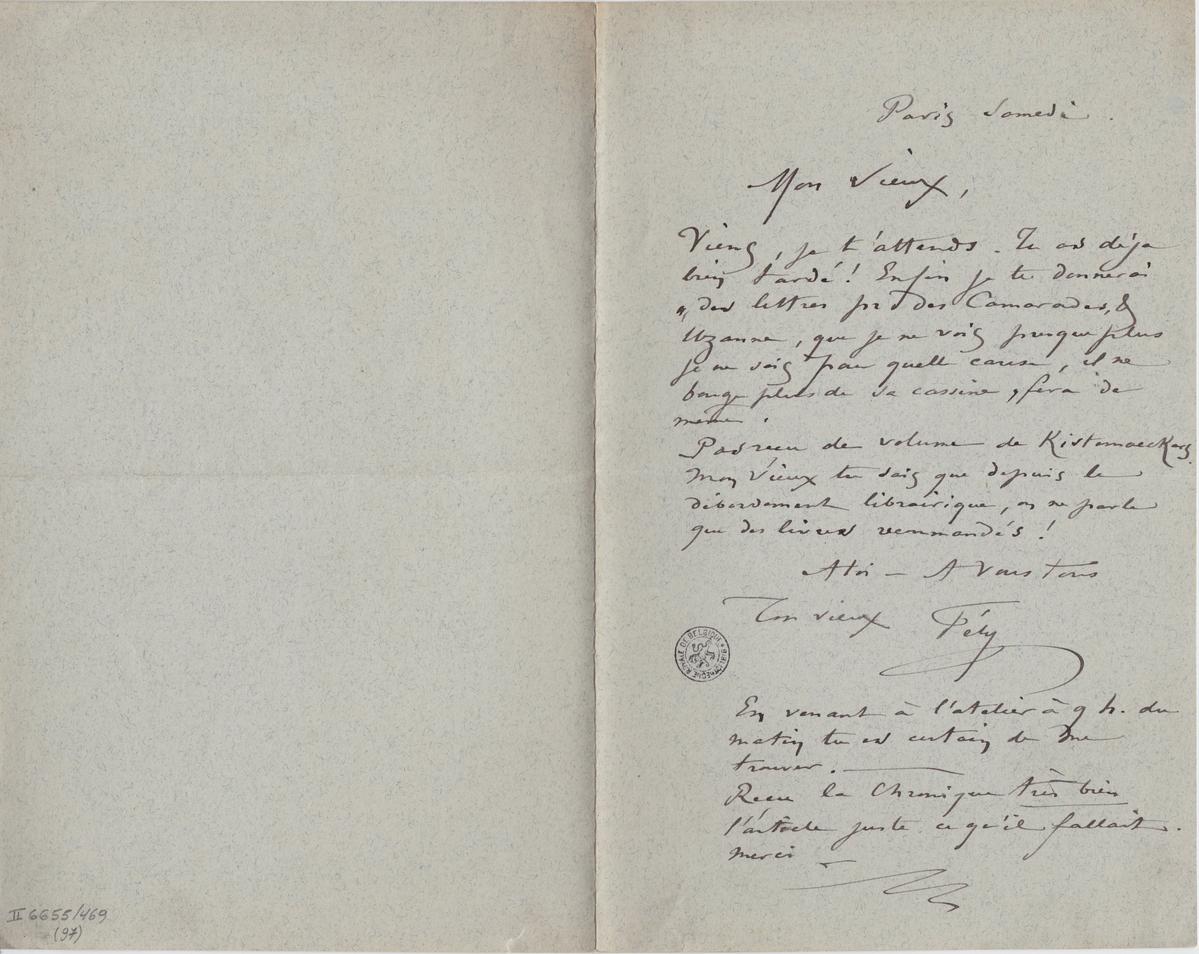 Paris Samedi.
Mon Vieux,
Viens, je t'attends. Tu as déja
bien tardé! Enfin je te donnerai
des lettres pr des Camarades, &
Uzanne, que je ne vois presque plus
je ne sais pour quelle cause, il ne
bouge plus de sa cassine, fera de
même.
Pas recu de volume de Kistemaeckers.
Mon Vieux tu sais que depuis le
débordement librairique, on ne parle
que des livres recommandés!
A toi – A Vous tous
Ton vieux Fély
BIBLIOTHÈQUE ROYALE DE BELGIQUE
En venant à l'atelier à 9 h. du
matin tu es certain de me
trouver.
Recu la Chronique très bien
l'article juste ce qu'il fallait.
merci
II 6655/469
(97)